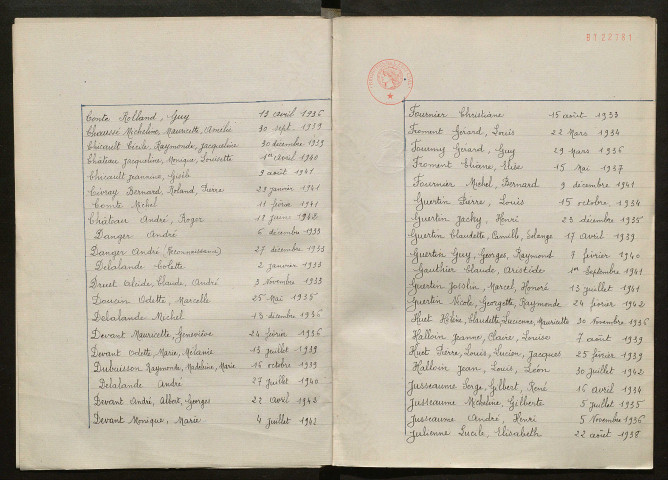 Conte Rolland, Guy 13 avril 1936
Chaussé Micheline, Mauricette, Amélie 30 sept. 1939
Chicault Cécile, Raymonde, Jacqueline 30 décembre 1939
Château Jacqueline, Monique, Louisette 1er avril 1940
Chicault Jeannine, Gisèle 9 août 1941
Civray Bernard, Roland, Pierre 29 janvier 1941
Comte Michel 11 février 1941
Château André, Roger 18 juin 1942
Danger André 6 décembre 1933
Danger André (Reconnaissance) 27 décembre 1933
Delalande Colette 2 janvier 1933
Druet Alcide, Claude, André 3 Novembre 1933
Doucin Odette, Marcelle 25 Mai 1935
Delalande Michel 13 décembre 1936
Devant Mauricette, Geneviève 24 février 1936
Devant Odette, Marie, Mélanie 13 juillet 1939
Dubuisson Raymonde, Madeleine, Marie 16 octobre 1939
Delalande André 27 juillet 1940
Devant André, Albert, Georges 22 avril 1942
Devant Monique, Marie 4 juillet 1942
Fournier Christiane 15 août 1933
Froment Gérard, Louis 22 Mars 1934
Fourmy Gérard, Guy 29 Mars 1936
Froment Eliane, Elise 15 Mai 1937
Fournier Michel, Bernard 9 décembre 1941
Guertin Pierre, Louis 15 octobre 1934
Guertin Jacky, Henri 23 décembre 1935
Guertin Claudette, Camille, Solange 17 avril 1939
Guertin Guy, Georges, Raymond 7 février 1940
Gauthier Claude, Aristide 1er Septembre 1941
Guertin Joselin, Marcel, Honoré 13 juillet 1941
Guertin Nicole, Georgette, Raymonde 24 février 1942
Huet Hélène, Claudette, Lucienne, Mauricette 30 Novembre 1936
Hallouin Jeanne, Claire, Louise 7 août 1939
Huet Pierre, Louis, Lucien, Jacques 25 février 1939
Hallouin Jean, Louis, Léon 30 juillet 1942
Jusseaume Serge, Gilbert, René 16 avril 1934
Jusseaume Micheline, Gilberte 5 juillet 1935
Jusseaume André, Henri 5 Novembre 1936
Julienne Lucile, Elisabeth 22 août 1938